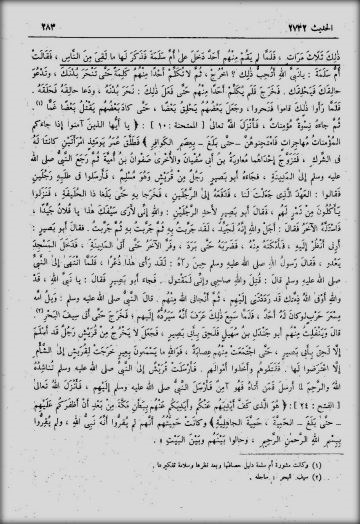 الحديث ٢٧٣٢ ٢٨٣
ذلك ثلاث مرات ، فلما لم يقم منهم أحد دخل على أم سلمة فذكر لها ما لقي من الناس ، فقالت
أم سلمة : يا نبي الله أتحب ذلك ؟ اخرج ، ثم لا تكلم أحدا منهم كلمة حتى تنحر بدنك ، وتدعو
حالقك فيحلقك . فخرج فلم يكلم أحدا منهم حتى فعل ذلك : نحر بدنه ، ودعا حالقه فحلقه .
فلما رأوا ذلك قاموا فنحروا ، وجعل بعضهم يحلق بعضا ، حتى كاد بعضهم يقتل بعضا غما (١)
ثم جاءه نسوة مؤمنات ، فأنزل الله تعالى [ الممتحنة : ١٠ ] : ﴿ يا أيها الذين آمنوا إذا جاءكم
المؤمنات مهاجرات فامتحنوهن – حتى بلغ – بعصم الكوافر ﴾ فطلق عمر يومئذ امرأتين كانتا له
في الشرك ، فتزوج إحداهما معاوية بن أبي سفيان والأخرى صفوان بن أمية ثم رجع النبي صلى الله
عليه وسلم إلى المدينة ، فجاءه أبو بصير رجل من قريش وهو مسلم ، فأرسلوا في طلبه رجلين
فقالوا : العهد الذي جعلت لنا ، فدفعه إلى الرجلين ، فخرجا به حتى بلغا ذا الحليفة ، فنزلوا
يأكلون من تمر لهم ، فقال أبو بصير لأحد الرجلين : والله إني لأرى سيفك هذا يا فلان جيدا ،
فاستله الآخر فقال : أجل والله إنه لجيد ، لقد جربت به ثم جربت به ثم جربت . فقال أبو بصير :
أرني أنظر إليه ، فأمكنه منه ، فضربه حتى برد ، وفر الآخر حتى أتى المدينة ، فدخل المسجد
يعدو ، فقال رسول الله صلى الله عليه وسلم حين رآه : لقد رأى هذا ذعرا ، فلما انتهى إلى النبي
صلى الله عليه وسلم قال : قتل والله صاحبي وإني لمقتول . فجاء أبو بصير فقال : يا نبي الله ، قد
والله أوفى الله ذمتك قد رددتني إليهم ، ثم أنجاني الله منهم . قال النبي صلى الله عليه وسلم : ويل أمه
مسعر حرب لو كان له أحد ، فلما سمع ذلك عرف أنه سيرده إليهم ؛ فخرج حتى أتى سيف البحر (٢)
قال وينفلت منهم أبو جندل بن سهيل فلحق بأبي بصير ، فجعل لا يخرج من قريش رجل قد أسلم
إلا لحق بأبي بصير ، حتى اجتمعت منهم عصابة ، فوالله ما يسمعون بعير خرجت لقريش إلى الشام
إلا اعترضوا لها . فقتلوهم وأخذوا أموالهم . فأرسلت قريش إلى النبي صلى الله عليه وسلم تناشده
الله والرحم لما أرسل فمن أتاه فهو آمن فأرسل النبي صلى الله عليه وسلم إليهم ، فأنزل الله تعالى
[ الفتح : ٢٤ ] : ﴿ هو الذي كف أيديهم عنكم وأيديكم عنهم ببطن مكة من بعد أن أظفركم عليهم
– حتى بلغ – الحمية ، حمية الجاهلية ﴾ وكانت حميتهم أنهم لم يقروا أنه نبي الله ، ولم يقروا
ببسم الله الرحمن الرحيم ، وحالوا بينهم وبين البيت » .
(١) وكانت مشورة أم سلمة دليل حصافتها وبعد نظرها وسلامة تفكيرها .
(٢) سيف البحر : ساحله .